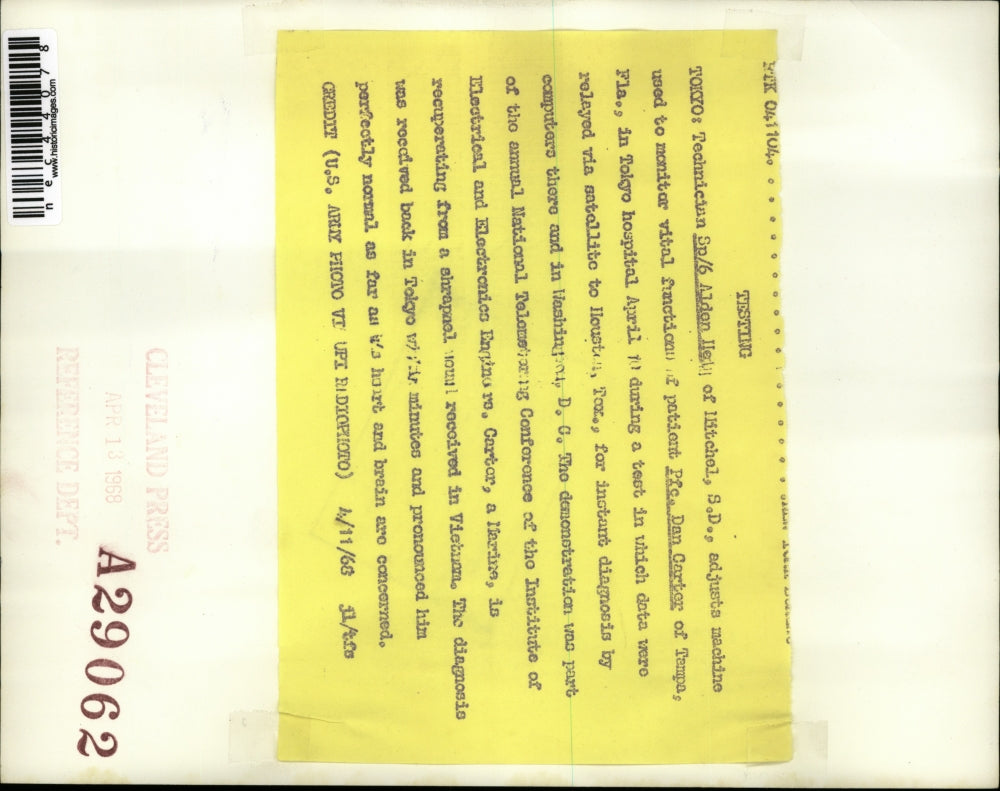 FTK 041104. . . . . . . . . . . . . .
TESTING
TOKYO: Technician Sp/6 Alden of Mitchel, S.D., adjusts machine
used to monitor vital functions of patient Pfc. Dan Carter of Tampa,
Fla., in Tokyo hospital April 10 during a test in which data were
relayed via satellite to Houston, Tex., for instant diagnosis by
computers there and in Washington, D. C. The demonstration was part
of the annual National Telemetering Conference of the Institute of
Electrical and Electronics Engineers. Carter, a Marine, is
recuperating from a shrapnel wound received in Vietnam. The diagnosis
was received back in Tokyo within minutes and pronounced him
perfectly normal as far as his heart and brain are concerned.
CREDIT (U.S. ARMY PHOTO VI UPI RADIOPHOTO) 4/11/68 jl/tfs
CLEVELAND PRESS
APR 13 1968
REFERENCE DEPT.
A29062
www.historicimages.com
nec44078